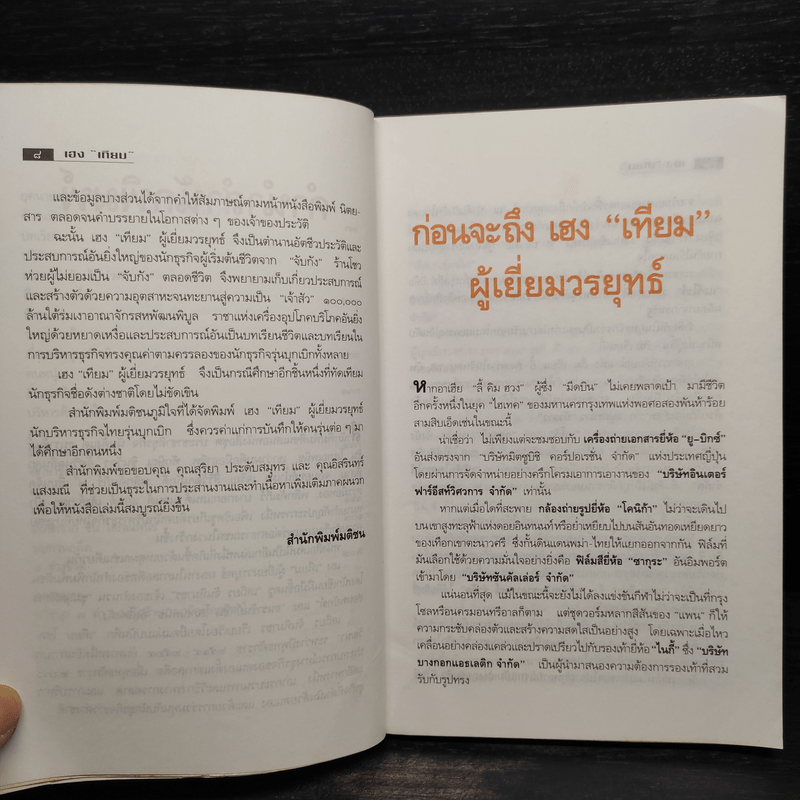 ๘ เฮง "เทียม"
และข้อมูลบางส่วนได้จากคำให้สัมภาษณ์ตามหน้าหนังสือพิมพ์ นิตย-
สาร ตลอดจนคำบรรยายในโอกาสต่าง ๆ ของเจ้าของประวัติ
ฉะนั้น เฮง "เทียม" ผู้เยี่ยมวรยุทธ์ จึงเป็นตำนานอัตชีวประวัติและ
ประสบการณ์อันยิ่งใหญ่ของนักธุรกิจผู้เริ่มต้นชีวิตจาก "จับกัง" ร้านโชว
ห่วยผู้ไม่ยอมเป็น "จับกัง" ตลอดชีวิต จึงพยายามเก็บเกี่ยวประสบการณ์
และสร้างตัวด้วยความอุตสาหะจนทะยานสู่ความเป็น "เจ้าสัว" ๑๐๐,๐๐๐
ล้านใต้ร่มเงาอาณาจักรสหพัฒนพิบูล ราชาแห่งเครื่องอุปโภคบริโภคอันยิ่ง
ใหญ่ด้วยหยาดเหงื่อและประสบการณ์อันเป็นบทเรียนชีวิตและบทเรียนใน
การบริหารธุรกิจทรงคุณค่าตามครรลองของนักธุรกิจรุ่นบุกเบิกทั้งหลาย
เฮง "เทียม" ผู้เยี่ยมวรยุทธ์ จึงเป็นกรณีศึกษาอีกชิ้นหนึ่งที่ทัดเทียม
นักธุรกิจชื่อดังต่างชาติโดยไม่ขัดเขิน
สำนักพิมพ์มติชนภูมิใจที่ได้จัดพิมพ์ เฮง "เทียม" ผู้เยี่ยมวรยุทธ์
นักบริหารธุรกิจไทยรุ่นบุกเบิก ซึ่งควรค่าแก่การบันทึกให้คนรุ่นต่อ ๆ มา
ได้ศึกษาอีกคนหนึ่ง
สำนักพิมพ์ขอขอบคุณ คุณสุริยา ประดับสมุทร และ คุณอิสรินทร์
แสงมณี ที่ช่วยเป็นธุระในการประสานงานและทำเนื้อหาเพิ่มเติมภาคผนวก
เพื่อให้หนังสือเล่มนี้สมบูรณ์ยิ่งขึ้น
สำนักพิมพ์มติชน
ก่อนจะถึง เฮง "เทียม"
ผู้เยี่ยมวรยุทธ์
หากอาเฮีย "ลี้ คิม ฮวง" ผู้ซึ่ง "มีดบิน" ไม่เคยพลาดเป้า มามีชีวิต
อีกครั้งหนึ่งในยุค "ไฮเทค" ของมหานครกรุงเทพแห่งพอศอสองพันห้าร้อย
สามสิบเอ็ดเช่นในขณะนี้
น่าเชื่อว่า ไม่เพียงแต่จะชมชอบกับ เครื่องถ่ายเอกสารยี่ห้อ "ยู-บิกซ์"
อันส่งตรงจาก "บริษัทมิตซูบิชิ คอร์ปอเรชั่น จำกัด" แห่งประเทศญี่ปุ่น
โดยผ่านการจัดจำหน่ายอย่างครึกโครมเอาการเอางานของ "บริษัทอินเตอร์
ฟาร์อีสท์วิศวการ จำกัด" เท่านั้น
หากแต่เมื่อใดที่สะพาย กล้องถ่ายรูปยี่ห้อ "โคนิก้า" ไม่ว่าจะเดินไป
บนเขาสูงทะลุฟ้าแห่งดอยอินทนนท์หรือย่ำเหยียบไปบนสันอันทอดเหยียดยาว
ของเทือกเขาตะนาวศรี ซึ่งกั้นดินแดนพม่า-ไทยให้แยกออกจากกัน ฟิล์มที่
มันเลือกใช้ด้วยความมั่นใจอย่างยิ่งคือ ฟิล์มสียี่ห้อ "ซากุระ" อันอิมพอร์ต
เข้ามาโดย "บริษัทซันคัลเล่อร์ จำกัด"
แน่นอนที่สุด แม้ในขณะนี้จะยังไม่ได้ลงแข่งขันกีฬาไม่ว่าจะเป็นที่กรุง
โซลหรือนครมอนทรีอาลก็ตาม แต่ชุดวอร์มหลากสีสันของ "แพน" ก็ให้
ความกระชับคล่องตัวและสร้างความสดใสเป็นอย่างสูง โดยเฉพาะเมื่อไหว
เคลื่อนอย่างคล่องแคล่วและปราดเปรียวไปกับรองเท้ายี่ห้อ "ไนกี้" ซึ่ง "บริษัท
บางกอกแอธเลติก จำกัด" เป็นผู้นำมาสนองความต้องการรองเท้าที่สวม
รับกับรูปทรง